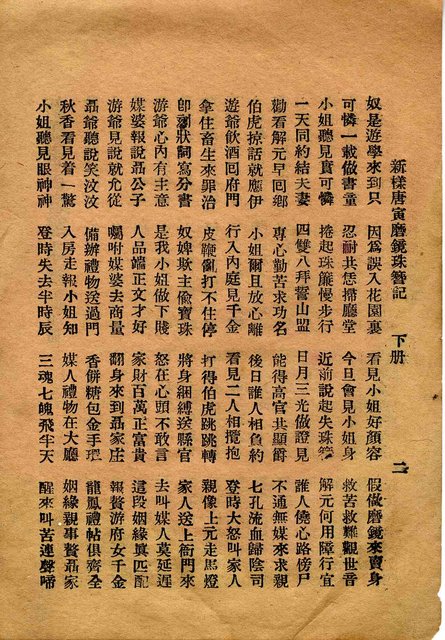 新樣唐寅磨鏡珠簪記 下册 二
奴是遊學來到只 因爲誤入花園裏 看見小姐好顏容 假做磨鏡來賣身
可憐一載做書童 忍耐共恁掃廳堂 今旦會見小姐身 救苦救難觀世音
小姐聽見實可憐 捲起珠簾慢步行 近前說起失珠簪 解元何用障行宜
一天同約結夫妻 四雙八拜誓山盟 日月三光做證見 誰人僥心路傍尸
勸看解元早回鄉 專心勤苦求功名 能得高官共顯爵 不通無媒來求親
伯虎掠話就應伊 小姐爾且放心離 後日誰人相負約 七孔流血歸陰司
遊爺飲酒回府門 行入內庭見千金 看見二人相攬抱 登時大怒叫家人
拿住畜生來罪治 皮鞭亂打不住停 打得伯虎跳跳轉 親像上元走馬燈
卽剳狀詞寫分書 奴婢欺主偷寶珠 將身綑縛送縣官 家人送上衙門來
游爺心內有主意 是我小姐做下賤 怒在心頭不敢言 去叫媒人莫延遲
媒婆報說聶公子 人品端正文才好 家財百萬正富貴 這段姻緣眞匹配
游爺見說就允從 囑咐媒婆去商量 翻身來到聶家庄 報贅游府女千金
聶爺聽說笑汶汶 備辦禮物送過門 香餅糖包金手環 龍鳳禮帖俱齊全
秋香看見着一驚 入房走報小姐知 媒人禮物在大廳 姻緣親事贅聶家
小姐聽見眼神神 登時失去半時辰 三魂七魄飛半天 醒來叫苦連聲啼